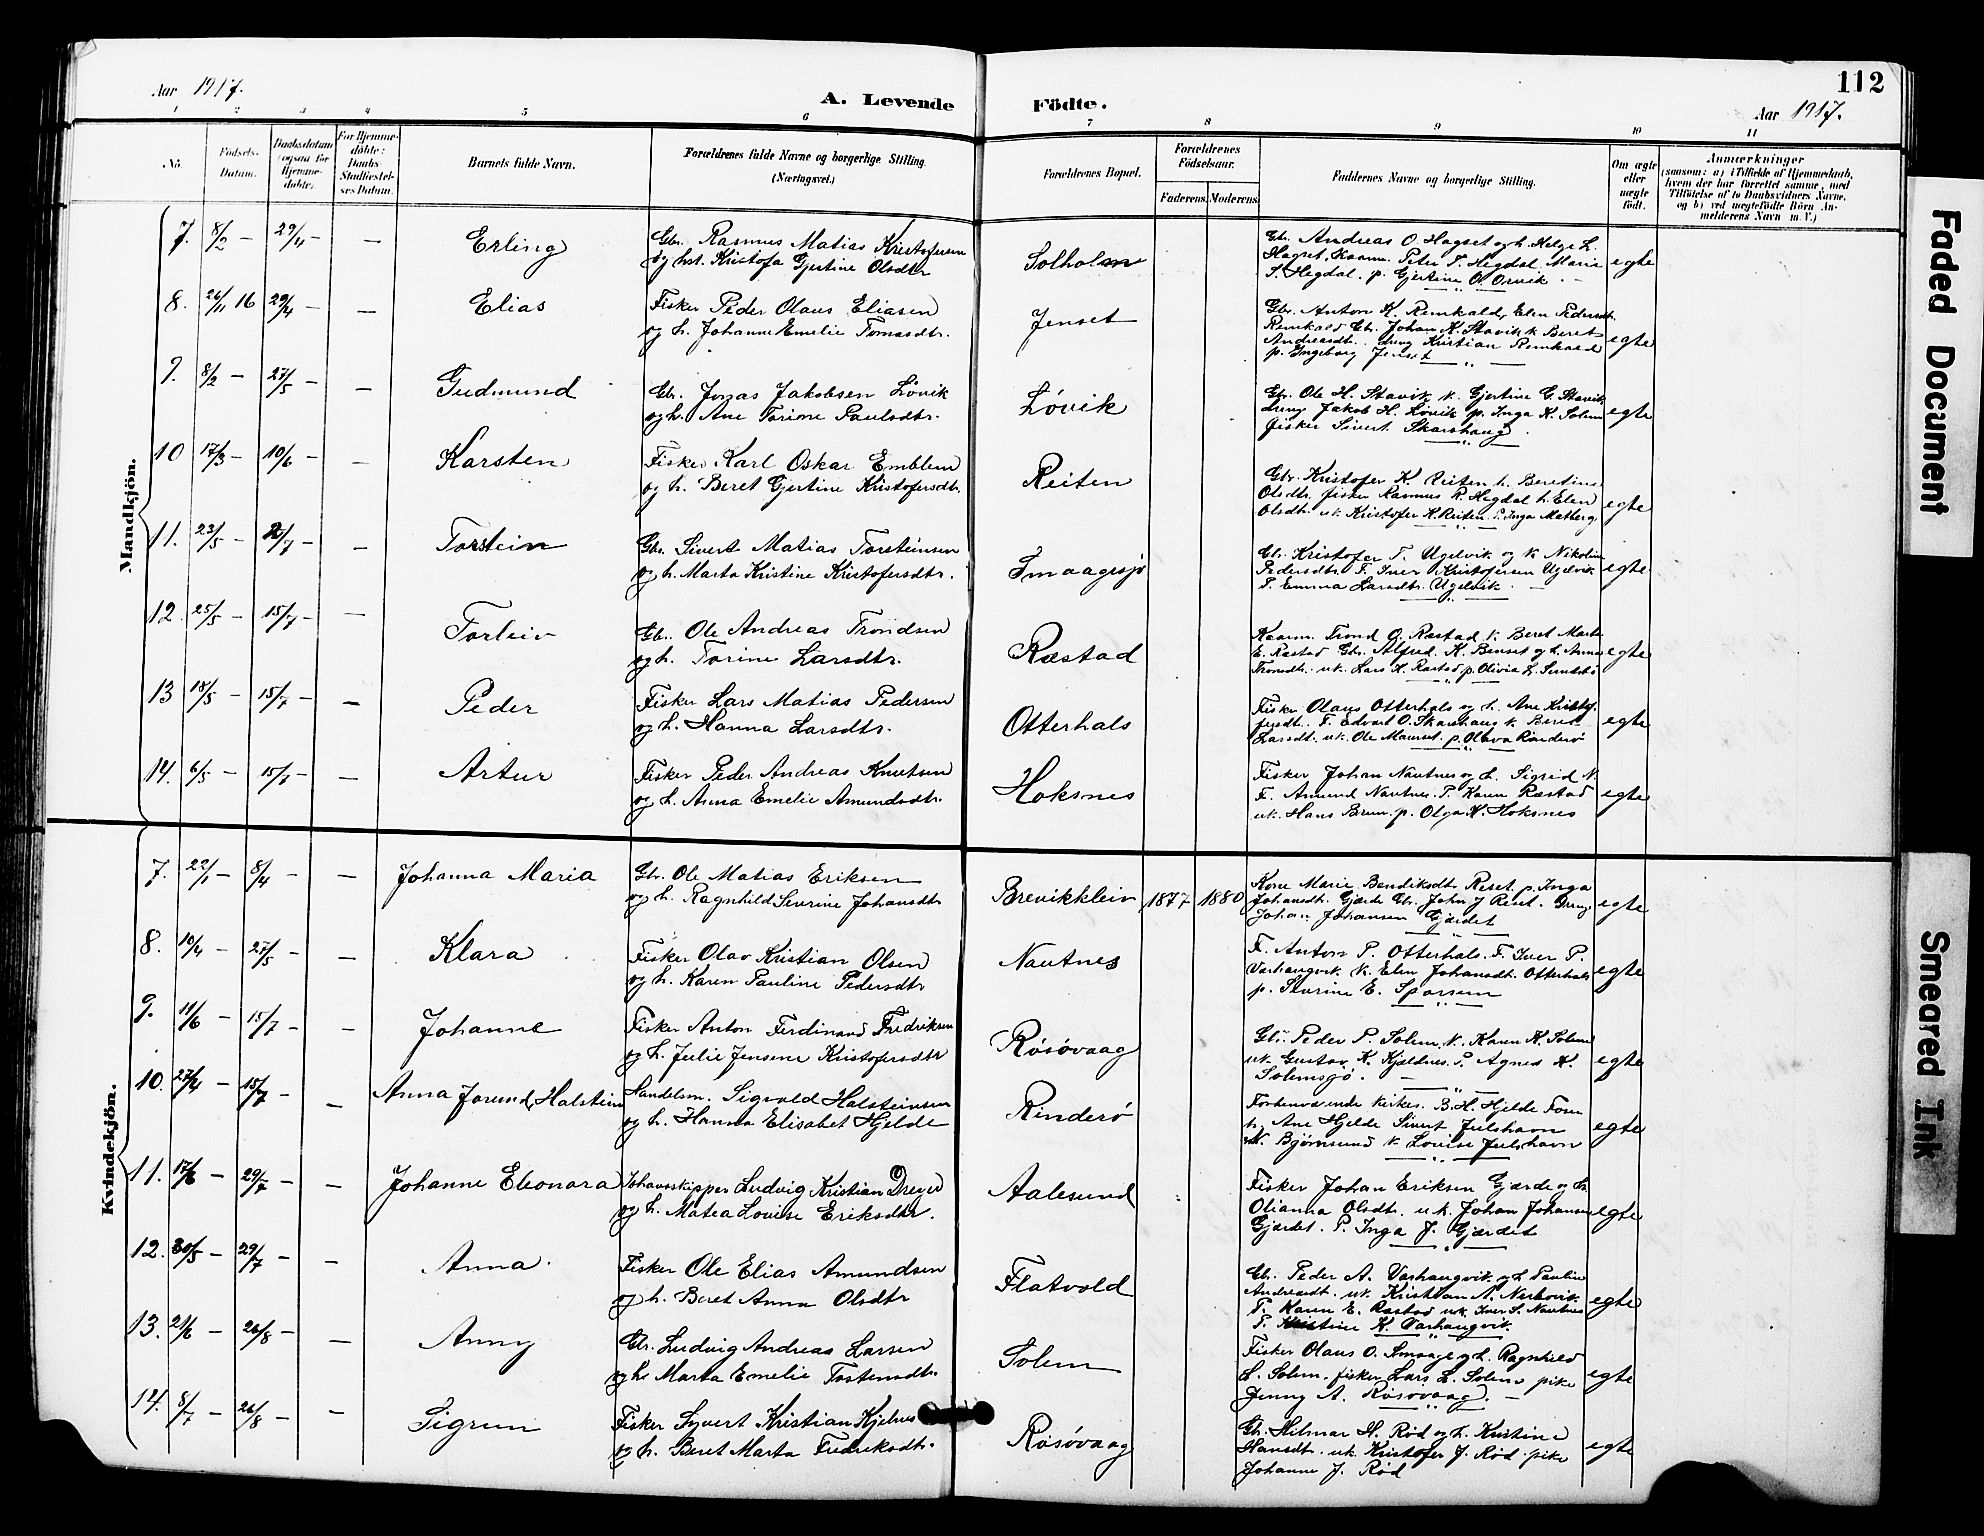 112
Aar 1917.
A. Levende Födte.
Aar 1917.
1 2 3 4 5 6 7 8 9 10 11
No.
Födsels-Datum.
Daabsdatum (ogsaa for Hjemmedöbte).
For Hjemmedöbte: Daabs-Stadfæstelses Datum.
Barnets fulde Navn.
Forældrenes fulde Navne og borgerlige Stilling. (Næringsvei.)
Forældrenes Bopæl.
Forældrenes Födselsaar.
Faderens. Moderens.
Faddernes Navne og borgerlige Stilling.
Om ægte eller uægte födt.
Anmærkninger
(saasom: a) i Tilfælde af Hjemmedaab, hvem der har forrettet samme, med Tilföielse af to Daabsvidners Navne, og b) ved uægtefödte Börn Anmelderens Navn m. V.)
Mandkjön.
7. 8/2 — 29/4 — — Erling
Gbr. Rasmus Matias Kristofersen
og hst. Kristofa Gjertine Olsdtr
Solholm
Gbr. Andreas O. Hagset og h. Helge L.
Hagset, Kaarm. Peter P. Hegdal Marie
S. Hegdal. p. Gjertine O. Orvik. —
egte
8. 26/11 16 29/4 — — Elias
Fisker Peder Olaus Eliasen
og h. Johanne Emelie Tomasdtr.
Jenset
Gbr. Anton K. Remkald, Elen Pedersdt.
Remkald Gb. Johan K. Stavik k Beret
Andreasdt. dreng Kristian Remkald
p. Ingeborg Jenset
egte
9. 8/2 — 27/5 — — Gudmund
Gbr. Jonas Jakobsen Lövik
og h. Ane Torine Paulsdtr.
Lövik
Gbr. Ole H. Stavik k. Gjertine G. Stavik
dreng Jakob H. Lövik p. Inga K. Solem
fisker Sivert Skarshaug.
egte
10 17/3 — 10/6 — — Karsten
Fisker Karl Oskar Emblem
og h. Beret Gjertine Kristofersdtr.
Reiten
Gbr. Kristofer K. Reiten h. Beretine
Olsdtr. fisker Rasmus R. Hegdal h. Elen
Olsdt. uk. Kristofer K. Reiten. P. Inga Malberg
egte
11. 23/5 — /7 — — Torstein
Gbr. Sivert Matias Torsteinsen
og h. Marta Kristine Kristofersdtr.
Smaagesjö
Gbr. Kristofer T. Ugelvik og k Nikoline
Pedersdtr. F. Iver Kristofersen Ugelvik
P. Emma Larsdtr. Ugelvik. —
egte
12. 25/5 — 15/7 — — Torleiv
Gbr. Ole Andreas Trondsen
og h. Torine Larsdtr.
Ræstad
Kaarm. Trond O. Ræstad k. Beret Marte
E. Ræstad Gbr. Alfred K. Benset og h. Anna
Trondt. uk. Lars K. Ræstad p. Olivia L.
egte
13 18/5 — 15/7 — — Peder
Fisker Lars Matias Pedersen
og h. Hanna Larsdtr.
Otterhals
Fisker Olaus Otterhals og h. Ane Kristof-
fersdt. F. Edvart O. Skarshaug k. Beret
Larsdt. uk. Ole Mauset. p. Olava Rinderö
egte
14. 6/5 — 15/7 — — Artur
Fisker Peder Andreas Knutsen
og h. Anna Emelie Amundsdtr.
Hoksnes
Fisker Johan Nautnes og h. Sigrid N.
F. Amund Nautnes. P. Karen Ræstad
uk. Hans Bruun. p. Olga K. Hoksnes
egte
Kvindekjön.
7. 22/1 — 8/4 — — Johanna Maria
Gbr. Ole Matias Eriksen
og h. Ragnhild Severine Johansdtr
Brevikkleiv 1877 1880
Kone Marie Bendiksdtr. Reset p. Inga
Johansdt. Gjærde Gbr. John J Reset. Dreng
Johan Johansen Gjærdet
egte
8. 10/4 — 27/5 — — Klara
Fisker Olav Kristian Olsen
og h. Karen Pauline Pedersdtr
Nautnes
F. Anton P. Otterhals. F. Iver P.
Varhaugvik k. Elen Johansdt. Otterhals
p. Severine E. Sporsem
egte
9. 11/6 — 15/7 — — Johanne
Fisker Anton Ferdinand Fredriksen
og h. Julie Jensine Kristofersdtr
Rösövaag
Gbr. Peder P. Solem k. Karen K. Solem
uk. Gustav K. Kjelnes. P. Agnes K.
Solemsjö. —
egte
10. 27/4 — 15/7 — — Anna Jorund Halstein
Handelsm. Sigvald Halsteinsen
og h. Hanna Elisabet Hjelde
Rinderö
Forhenværende kirkes. B. H. Hjelde Form
h. Ane Hjelde Sivert Julshavn
M. Björnsund k. Lovise Julshavn
egte
11. 17/6 — 29/7 — — Johanne Eleonora
Johavsskipper Ludvig Kristian Dreyer
og h. Matea Lovise Eriksdtr.
Aalesund
Fisker Johan Eriksen Gjærde og h.
Olianna Olsdt. uk. Johan Johansen
Gjærdet. P. Inga J. Gjærdet
egte
12. 30/5 — 29/7 — — Anna.
Fisker Ole Elias Amundsen
og h. Beret Anna Olsdtr
Flatvold
Gbr. Peder A. Varhaugvik og h Pauline
Andreasdt. uk. Kristian N. Nerbövik
P. Karen E. Ræstad uk. Iver S. Nautnes
P. Kristine K. Varhaugvik.
egte
13. 21/6 — 26/8 — — Anny
Gbr. Ludvig Andreas Larsen
og h. Marta Emelie Tostensdtr.
Solem
Fisker Olaus O. Smaage og h. Ragnhild
L. Solem. fisker Lars L. Solem pike
Jenny A. Rösövaag. —
egte
14. 8/7 — 26/8 — — Sigrun
Fisker Syvert Kristian Kjelnes
og h. Beret Marta Fredriksdtr.
Rösövaag
Gb. Hilmar H. Röd og h. Kristine
Hansdt. uk. Kristofer J. Röd. pike
Johanne J. Röd
egte
Faded Document
Smeared Ink